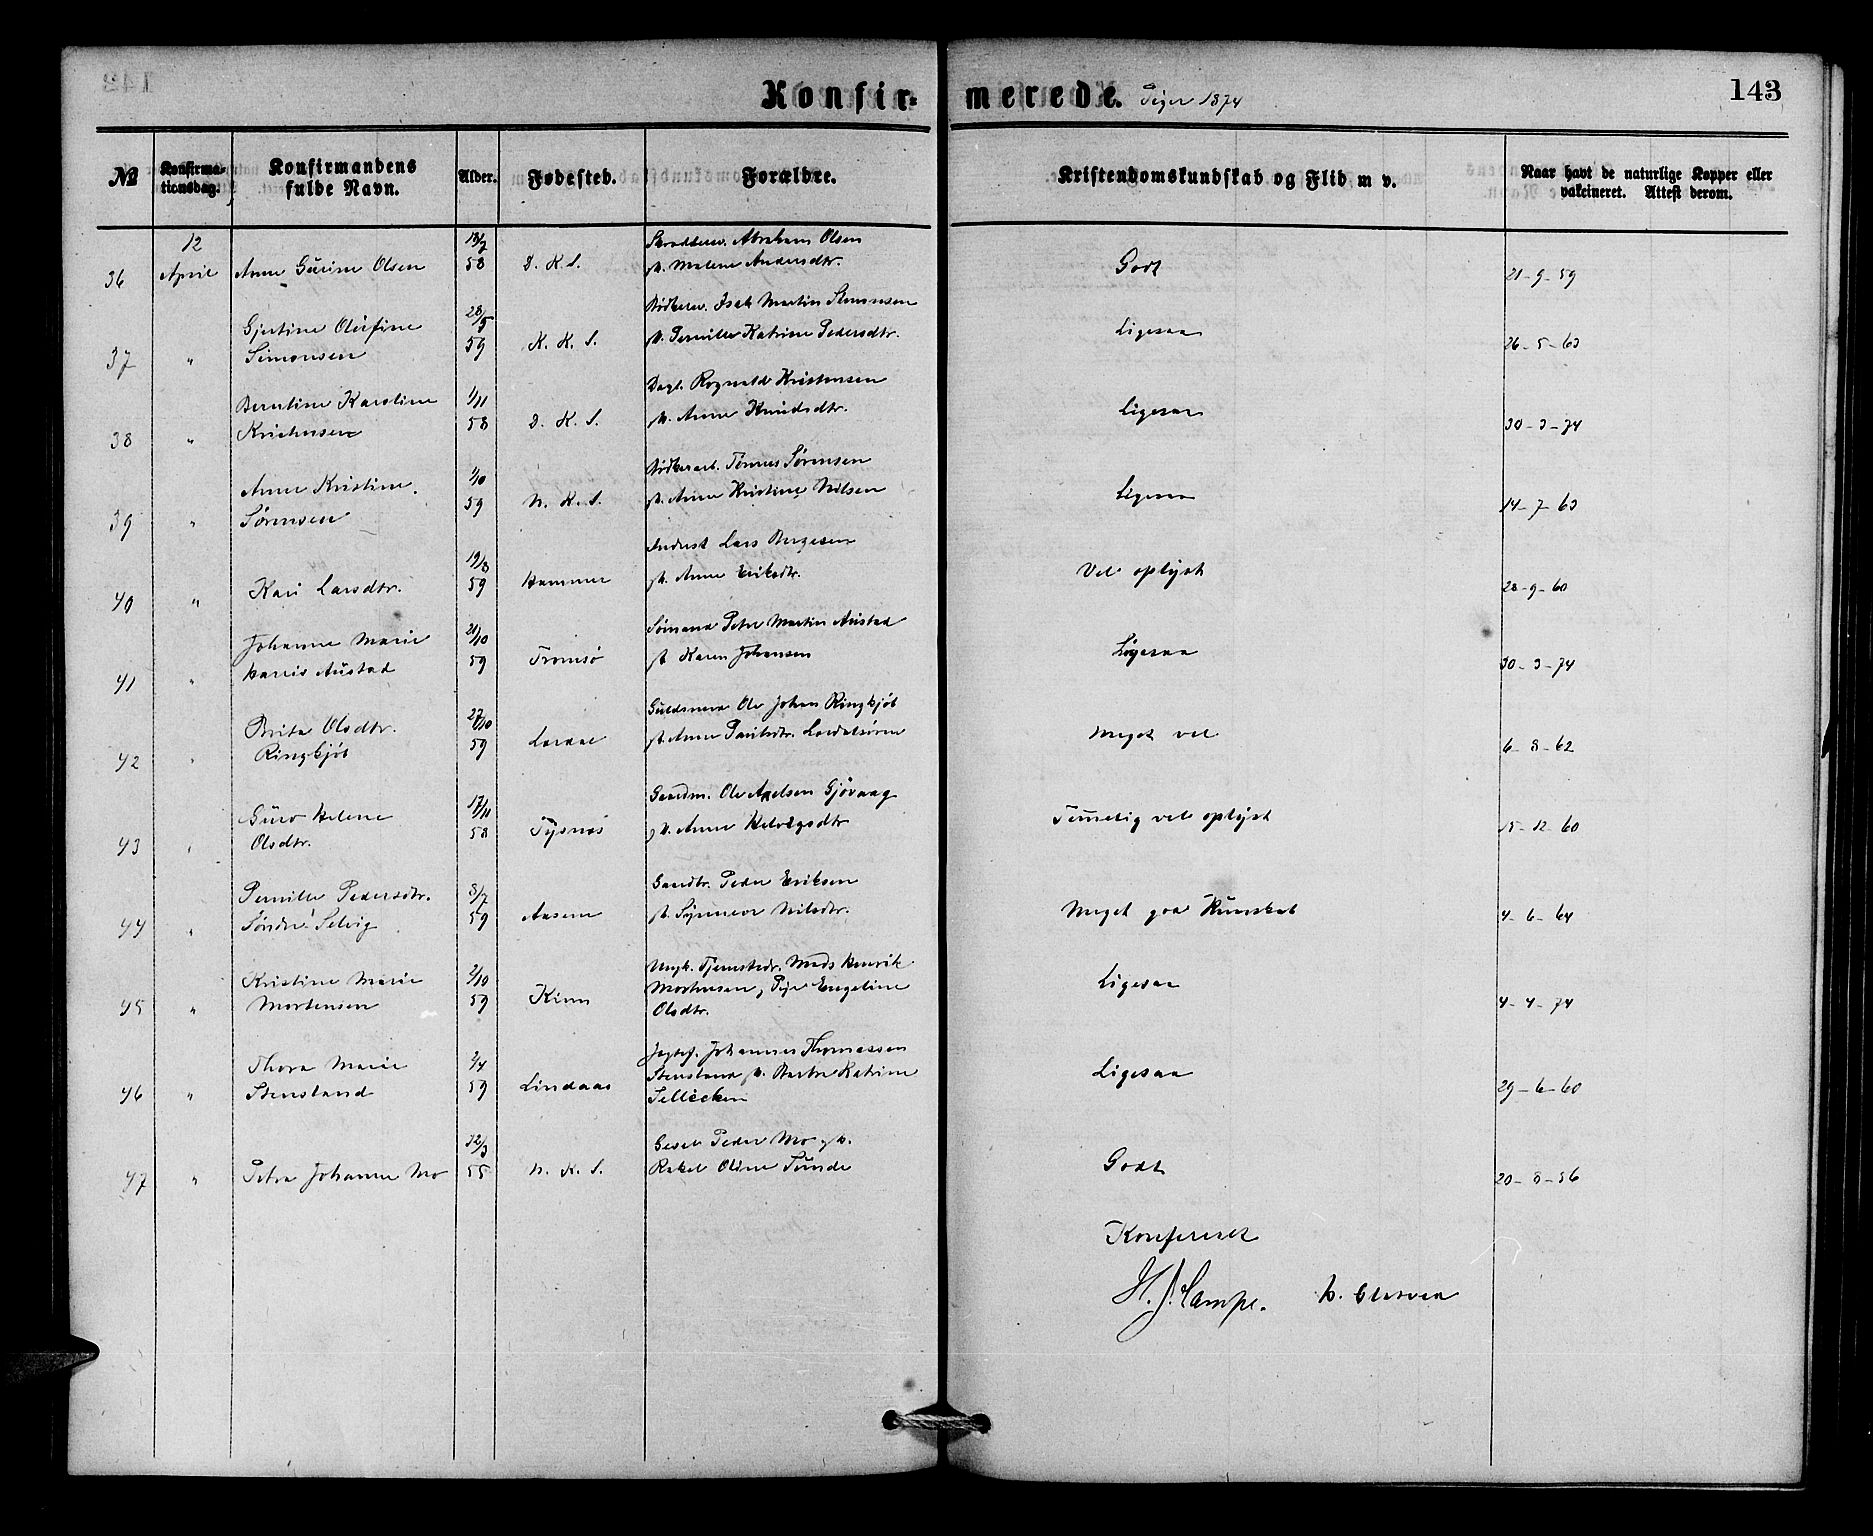 Konfirmerede. Piger 1874
143
№ Konfirmationsdag. Konfirmandens fulde Navn. Alder. Fødested. Forældre. Kristendomskundskab og Flid m v. Naar havt de naturlige Kopper eller vakcineret. Attest derom.
12 13/7 Abraham Olsen
36 April Anne Gurine Olsen 58 D. K. S. Malene Andersdtr. Godt 21-9-59
Gjertine Olufine 28/5 Isak Martin Simonsen
37 " Simonsen 59 K. K. S. Pernille Katrine Pedersdtr. Ligesaa 26-5-63
Berntine Karoline 1/11 Dagl. Rognald Kristensen
38 " Kristensen 58 D. K. S. Anne Knudsdtr. Ligesaa 30-3-74
Anne Kristine 1/10 Tønnes Sørensen
39 " Sørensen 59 N. K. S. Anne Kristine Nilsen Ligesaa 14-7-63
19/8 Lars Birgesen
40 " Kari Larsdtr. 59 Hammer Anne Eriksdtr. Vel oplyst 28-9-60
Johanne Marie 21/10 Sømand Peter Martin Austad
41 " Harris Austad 59 Tromsø Karen Johansen Ligesaa 30-3-74
Brita Olsdtr. 27/10 Guldsmed Ole Johan Ringkjøb
42 " Ringkjøb 59 Lærdal Anne Lærdalsøren Meget vel 6-8-62
Guro Helene 17/11 Gaardm. Ole Axelsen Gjøvaag
43 " Olsdtr. 58 Tysnæs Anne Helvigsdtr Temmelig vel oplyst 15-12-60
Pernille Pedersdtr. 8/7 Gaardbr. Peder Eriksen
44 " Søndre Selvig 59 Aasene Synneve Nilsdtr. Meget god Kunskab 4-6-64
Kristine Marie 2/10 Ungk. Mads Henrik
45 " Mortensen 59 Kinn Mortensen, Pige Engeline Ligesaa 4-4-74
Olsdtr.
Thora Marie 2/4 Johannes Thomassen
46 " Stensland 59 Lindaas Stensland Katrine Ligesaa 29-6-60
Tellecken
Gesel Peder Mo
47 " Petra Johanne Mo 55 N. K. S. Rakel Oline Tunde Godt 20-8-56
Konfereret
H. J. Lampe.